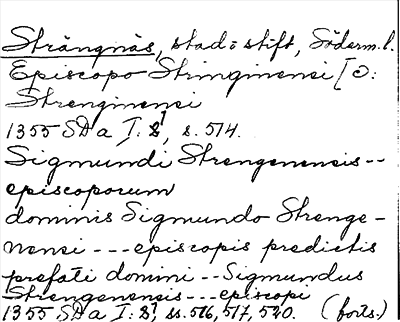 Strängnäs, stad o stift, Söderm. l.
Episcopo Stringinensi [ɔ:
Strenginensi
1355 SD a I: 8¹, s. 514.
Sigmundi Strengenensis --
episcoporum
dominis Sigmundo Strenge-
nensi --- episcopis predictis
prefati domini -- Sigmundus
Strengenensis --- episcopi
1355 SD a I: 8¹, ss. 516, 517, 520. (forts.)